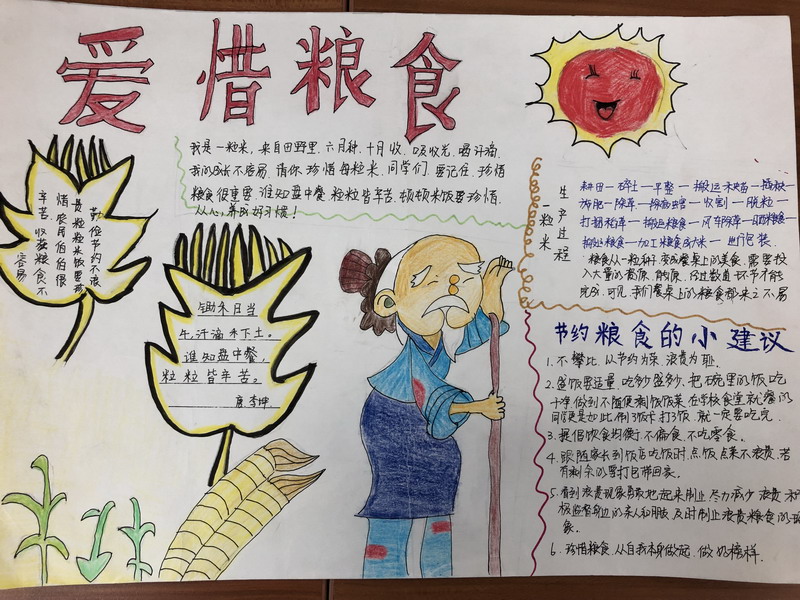 爱惜粮食
我是一粒米，来自田野里，六月种，十月收，吸收光，喝汗滴，
我的成长不容易，请你珍惜每粒米，同学们，要记住，珍惜
粮食很重要，谁知盘中餐，粒粒皆辛苦，顿顿米饭要珍惜，
从小养成好习惯！
勤俭节约不浪
费粒粒米饭要珍
惜农民伯伯很
辛苦，收获粮食不
容易
锄禾日当
午，汗滴禾下土。
谁知盘中餐，
粒粒皆辛苦。
唐：李绅
一粒米
生产过程
耕田一碎土一平整一搬运禾苗一插秧一
施肥一除草一除病虫害一收割一脱粒一
打捆秸秆一搬运粮食一风车除草一晒粮食一
搬运粮食一加工粮食成米一进行包装
粮食从一粒种子变成餐桌上的美食，需要投
入大量的资源、能源，经过数道环节才能
完成，可见，我们餐桌上的粮食都来之不易
节约粮食的小建议
1、不攀比，以节约为荣，浪费为耻。
2、盛饭要适量，吃多少盛多少，把碗里的饭吃
干净，做到不随便剩饭饭菜，在学校食堂就餐的
同学更是如此，打饭，就一定要吃完
3、提倡饮食均衡，不偏食，不吃零食。
4、跟随家长到饭店吃饭时，点饭点菜不浪费，若
有剩余的要打包带回家。
5、看到浪费现象勇敢地起来制止，尽力减少浪费，积
极监督身边的亲人和朋友，及时制止浪费粮食的现
象。
6、珍惜粮食，从自我本身做起，做好榜样。